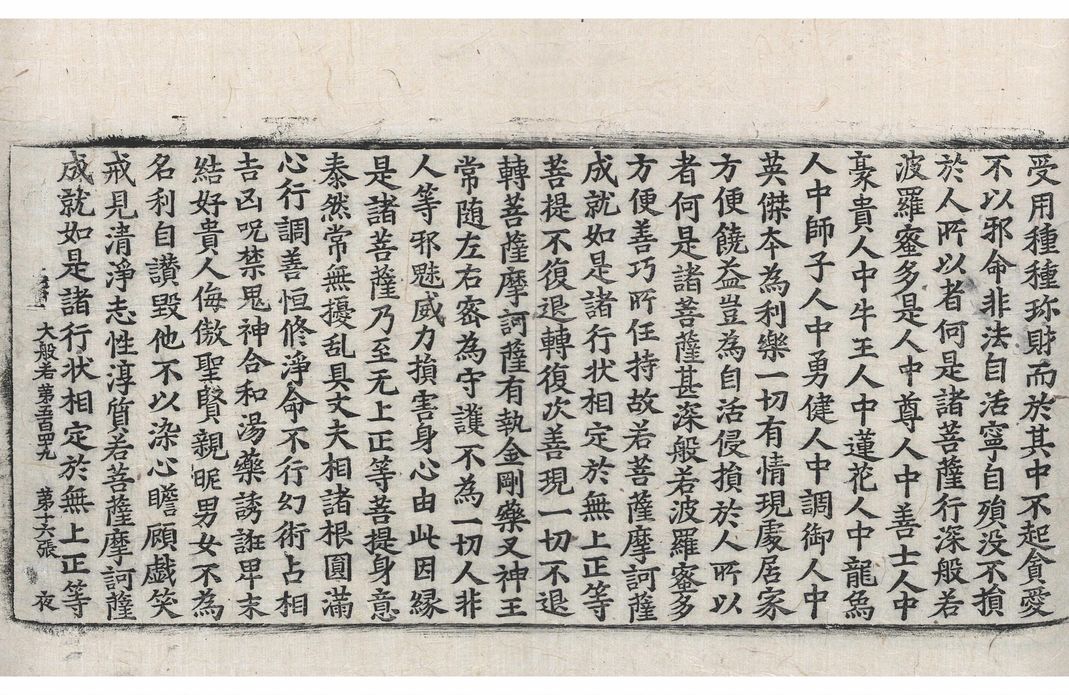 受用種種珎財而於其中不起貪愛
不以邪命非法自活寧自殞没不損
於人所以者何是諸菩薩行深般若
波羅蜜多是人中尊人中善士人中
豪貴人中牛王人中蓮花人中龍象
人中師子人中勇健人中調御人中
英傑本為利樂一切有情現處居家
方便饒益豈為自活侵損於人所以
者何是諸菩薩甚深般若波羅蜜多
方便善巧所任持故若菩薩摩訶薩
成就如是諸行状相定於無上正等
菩提不復退轉復次善現一切不退
轉菩薩摩訶薩有執金剛藥叉神王
常随左右密為守護不為一切人非
人等邪魅威力損害身心由此因縁
是諸菩薩乃至无上正等菩提身意
泰然常無擾乱具丈夫相諸根圓滿
心行調善恒修淨命不行幻術占相
吉凶呪禁鬼神合和湯藥誘誑卑末
結好貴人侮傲聖賢親昵男女不為
名利自讃毀他不以染心瞻顧戯笑
戒見清淨志性淳質若菩薩摩訶薩
成就如是諸行状相定於無上正等
大般若第五百四十九 第十六張 夜